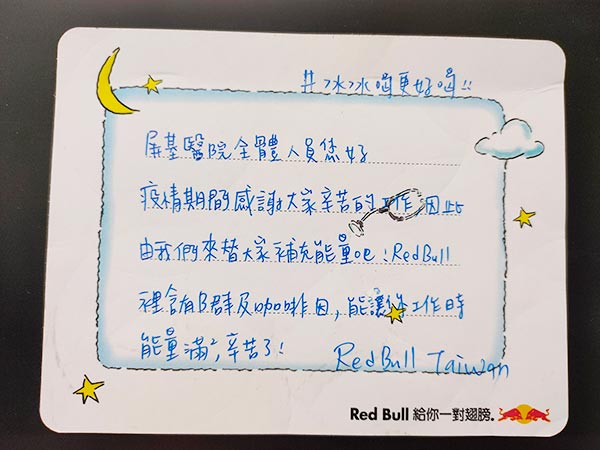 #冰冰喝更好喝!!
屏基醫院全體人員您好
疫情期間感謝大家辛苦的工作 因此
由我們來替大家補充能量吧!RedBull
裡含有B群及咖啡因,能讓你工作時
能量滿²,辛苦了!
RedBull Taiwan
Red Bull 給你一對翅膀.